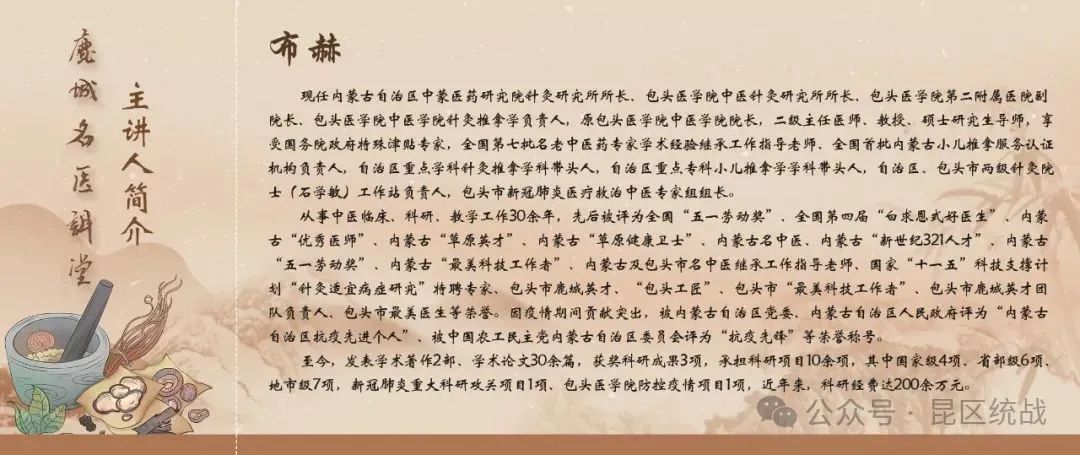 鹿城名医讲堂
主讲人简介
布赫
现任内蒙古自治区中蒙医药研究院针灸研究所所长、包头医学院中医针灸研究所所长、包头医学院第二附属医院副
院长、包头医学院中医学院针灸推拿学负责人，原包头医学院中医学院院长，二级主任医师、教授、硕士研究生导师，享
受国务院政府特殊津贴专家，全国第七批名老中医药专家学术经验继承工作指导老师、全国首批内蒙古小儿推拿服务认证
机构负责人，自治区重点学科针灸推拿学科带头人，自治区重点专科小儿推拿学学科带头人，自治区、包头市两级针灸院
士（石学敏）工作站负责人，包头市新冠肺炎医疗救治中医专家组组长。
从事中医临床、科研、教学工作30余年，先后被评为全国“五一劳动奖”、全国第四届“白求恩式好医生”、内蒙
古“优秀医师”、内蒙古“草原英才”、内蒙古“草原健康卫士”、内蒙古名中医、内蒙古“新世纪321人才”、内蒙古
“五一劳动奖”、内蒙古“最美科技工作者”、内蒙古及包头市名中医继承工作指导老师、国家“十一五”科技支撑计
划“针灸适宜病症研究”特聘专家、包头市鹿城英才、“包头工匠”、包头市“最美科技工作者”、包头市鹿城英才团
队负责人、包头市最美医生等荣誉。因疫情期间贡献突出，被内蒙古自治区党委、内蒙古自治区人民政府评为“内蒙古
自治区抗疫先进个人”、被中国农工民主党内蒙古自治区委员会评为“抗疫先锋”等荣誉称号。
至今，发表学术著作2部、学术论文30余篇，获奖科研成果3项，承担科研项目10余项，其中国家级4项、省部级6项、
地市级7项，新冠肺炎重大科研攻关项目1项、包头医学院防控疫情项目1项，近年来，科研经费达200余万元。
公众号·昆区统战